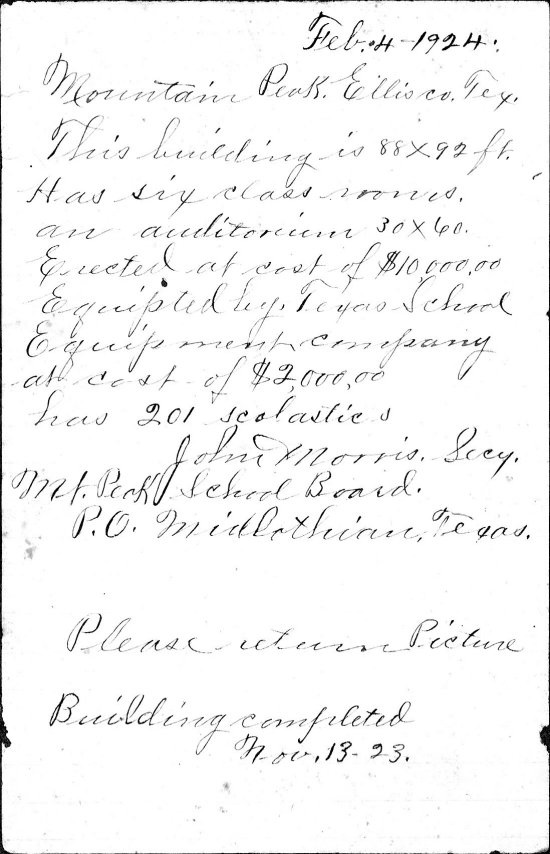 Feb. 4-1924.
Mountain Peak. Ellis co. Tex.
This building is 88X92 ft.
Has six class rooms.
an auditorium 30X60.
Erected at cost of $10,000,00
Equipted by. Texas School
Equipment company
at cost of $2,000,00
has 201 scolastics
John Morris. Secy.
Mt. Peak School Board.
P.O. Midlothian, Texas.
Please return Picture
Building completed
Nov. 13-23.